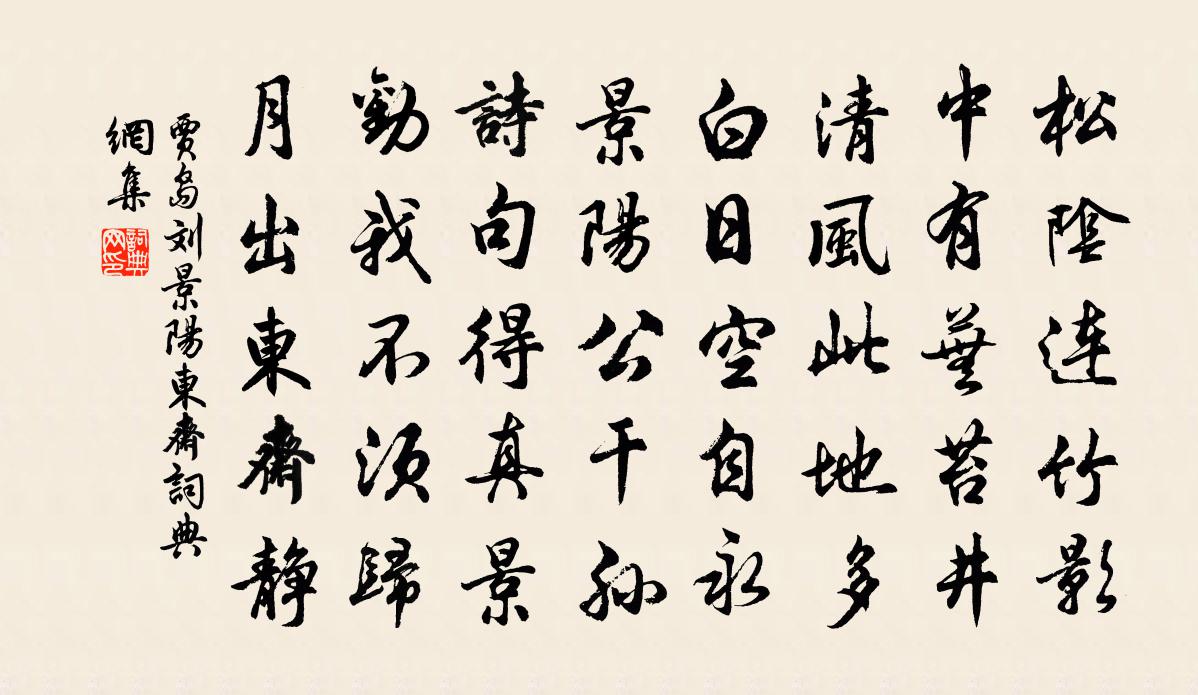 松陰連竹影
中有蕪苔井
清風此地多
白日空自永
景陽公干孫
詩句得真景
勸我不須歸
月出東齋靜
賈島刘景陽東齋詞典
網集
詞典
网印